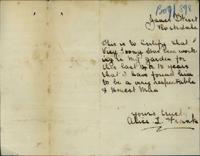 Bog 898
James Street
Rockdale
This is to Certify that
King Fong has been working
in my garden for
the last 10 to 12 years
that I have found him
to be a very respectable
& Honest Man
yours truly
Alice L. Frank